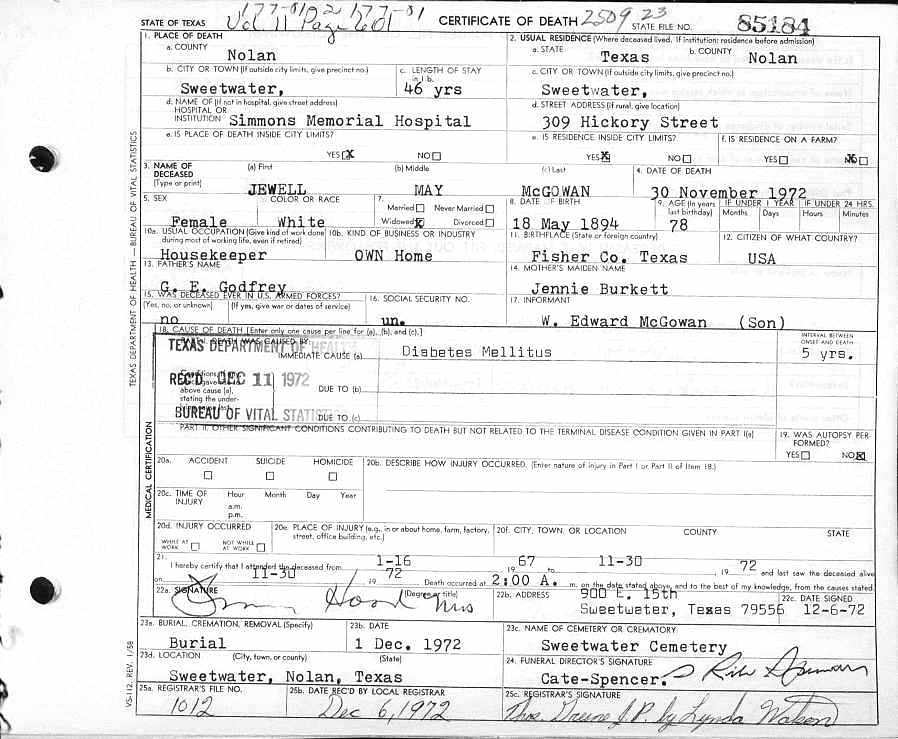 177-01 2 177-01
Vol 11 Page 2601
STATE OF TEXAS CERTIFICATE OF DEATH 2509 23 STATE FILE NO. 85184
1. PLACE OF DEATH 2. USUAL RESIDENCE (Where deceased lived. If institution: residence before admission)
a. COUNTY Nolan a. STATE Texas b. COUNTY Nolan
b. CITY OR TOWN (If outside city limits, give precinct no.) c. LENGTH OF STAY in 1 b. c. CITY OR TOWN (If outside city limits, give precinct no.)
Sweetwater, 46 yrs Sweetwater,
d. NAME OF (If not in hospital, give street address) HOSPITAL OR INSTITUTION d. STREET ADDRESS (If rural, give location)
Simmons Memorial Hospital 309 Hickory Street
e. IS PLACE OF DEATH INSIDE CITY LIMITS? e. IS RESIDENCE INSIDE CITY LIMITS? f. IS RESIDENCE ON A FARM?
YES X NO YES X NO YES NO X
3. NAME OF DECEASED (Type or print) (a) First (b) Middle (c) Last 4. DATE OF DEATH
JEWELL MAY McGOWAN 30 November 1972
5. SEX COLOR OR RACE 7. Married Never Married 8. DATE OF BIRTH 9. AGE (In years last birthday) IF UNDER 1 YEAR IF UNDER 24 HRS.
Months Days Hours Minutes
Female White Widowed X Divorced 18 May 1894 78
10a. USUAL OCCUPATION (Give kind of work done during most of working life, even if retired) 10b. KIND OF BUSINESS OR INDUSTRY 11. BIRTHPLACE (State or foreign country) 12. CITIZEN OF WHAT COUNTRY?
Housekeeper OWN Home Fisher Co. Texas USA
13. FATHER'S NAME 14. MOTHER'S MAIDEN NAME
G. E. Godfrey Jennie Burkett
15. WAS DECEASED EVER IN U.S. ARMED FORCES? 16. SOCIAL SECURITY NO. 17. INFORMANT
(Yes, no, or unknown) (If yes, give war or dates of service)
no un. W. Edward McGowan (Son)
18. CAUSE OF DEATH [Enter only one cause per line for (a), (b), and (c).] INTERVAL BETWEEN ONSET AND DEATH
TEXAS DEPARTMENT OF HEALTH
IMMEDIATE CAUSE (a) Diabetes Mellitus 5 yrs.
REC'D DEC 11 1972
above cause (a), stating the under- DUE TO (b)
BUREAU OF VITAL STATISTICS DUE TO (c)
PART II. OTHER SIGNIFICANT CONDITIONS CONTRIBUTING TO DEATH BUT NOT RELATED TO THE TERMINAL DISEASE CONDITION GIVEN IN PART I(a) 19. WAS AUTOPSY PERFORMED?
YES NO X
20a. ACCIDENT SUICIDE HOMICIDE 20b. DESCRIBE HOW INJURY OCCURRED. (Enter nature of injury in Part I or Part II of Item 18.)
20c. TIME OF INJURY Hour Month Day Year
a.m.
p.m.
20d. INJURY OCCURRED 20e. PLACE OF INJURY (e.g., in or about home, farm, factory, street, office building, etc.) 20f. CITY, TOWN, OR LOCATION COUNTY STATE
WHILE AT WORK NOT WHILE AT WORK
21. I hereby certify that I attended the deceased from 1-16 19 67 to 11-30 19 72 and last saw the deceased alive
on 11-30 19 72 Death occurred at 2:00 A. m. on the date stated above, and to the best of my knowledge, from the causes stated.
22a. SIGNATURE (Degree or title) 22b. ADDRESS 22c. DATE SIGNED
Hood 900 E. 15th
Sweetwater, Texas 79556 12-6-72
23a. BURIAL, CREMATION, REMOVAL (Specify) 23b. DATE 23c. NAME OF CEMETERY OR CREMATORY
Burial 1 Dec. 1972 Sweetwater Cemetery
23d. LOCATION (City, town, or county) (State) 24. FUNERAL DIRECTOR'S SIGNATURE
Sweetwater, Nolan, Texas Cate-Spencer.
25a. REGISTRAR'S FILE NO. 25b. DATE REC'D BY LOCAL REGISTRAR 25c. REGISTRAR'S SIGNATURE
1012 Dec 6, 1972 Thos. Greene J.P. by Lynda Watson
TEXAS DEPARTMENT OF HEALTH — BUREAU OF VITAL STATISTICS
MEDICAL CERTIFICATION
VS-112, REV. 1/58